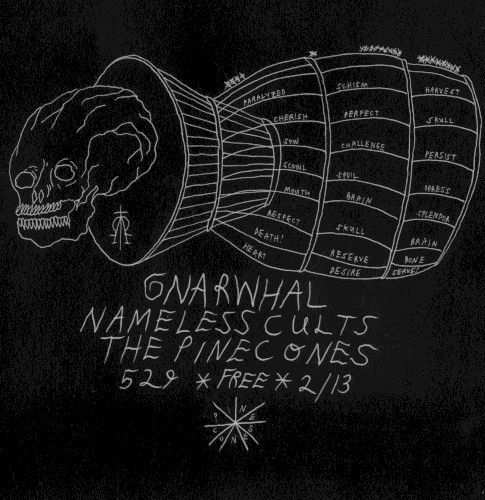 PARALYZED
CHERISH
SOW
SCOWL
MOUTH
RESPECT
DEATH!
HEART
SCHISM
PERFECT
CHALLENGE
SPOIL
BRAIN
SKULL
RESERVE
DESIRE
HARVEST
SKULL
PERSIST
SPLENDOR
BRAIN
BONE
SERVE!
GNARWHAL
NAMELESS CULTS
THE PINECONES
529 * FREE * 2/13
PINECONES